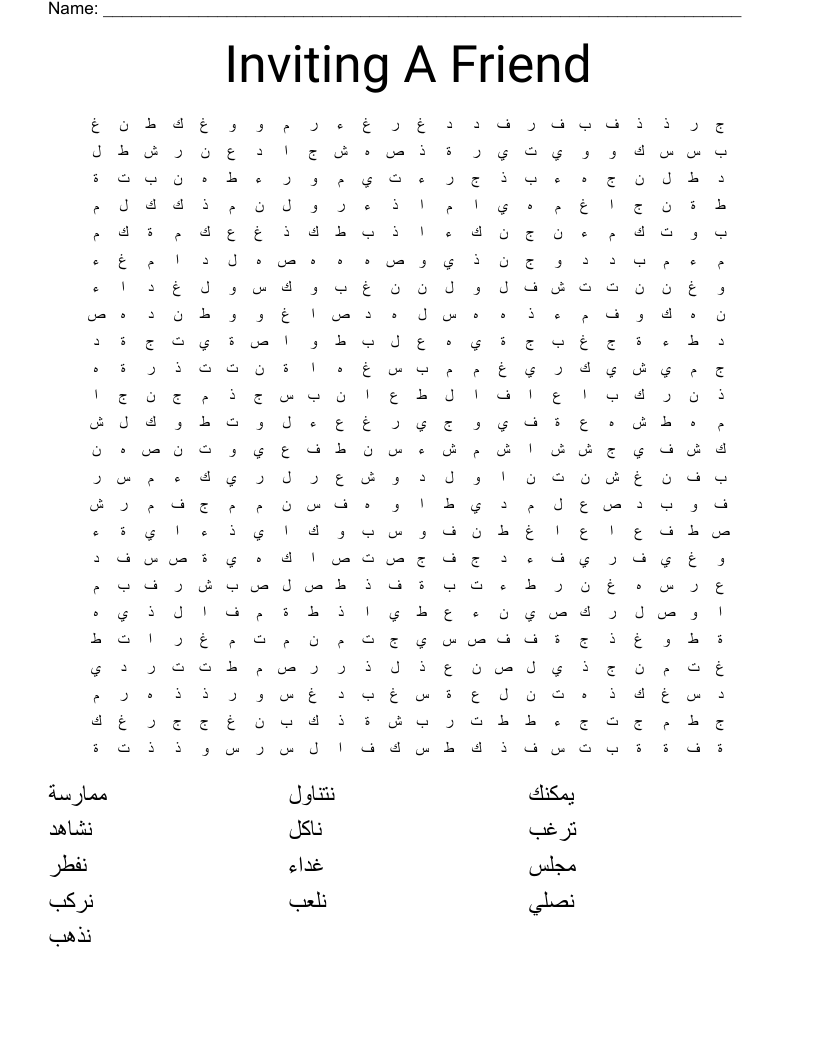 Name:
Inviting A Friend
ج ر ذ ذ ف ب ف ر ف د د غ ر غ ء ر م و و غ ك ط ن غ
ب س س ك و و ي ت ي ر ة ذ ص ه ش ج ا د ع ن ر ش ط ل
د ط ل ن ج ه ء ب ذ ج ر ء ت ي م و ر ء ط ه ن ب ت ة
ط ة ن ج ا غ م ه ي ا م ا ذ ء ر و ل ن م ذ ك ك ل م
ب و ت ك م ء ن ج ن ك ء ا ذ ب ط ك ذ غ ع ك م ة ك م
م ء م ب د د و ج ن ذ ي و ص ه ه ه ص ه ل د ا م غ ء
و غ ن ن ت ت ش ف ل و ل ن ن غ ب و ك س و ل غ د ا ء
ن ه ك و ف م ء ذ ه ه س ل ه د ص ا غ و و ط ن د ه ص
د ط ء ة ج غ ب ج ة ي ه ع ل ب ط و ا ص ة ي ت ج ة د
ج م ي ش ي ك ر ي غ م م ب س غ ه ا ة ن ت ت ذ ر ة ه
ذ ن ر ك ب ا ع ا ف ا ل ط ع ا ن ب س ج ذ م ج ن ج ا
م ه ط ش ه ع ة ف ي و ج ي ر غ ع ء ل و ت ط و ك ل ش
ك ش ف ي ج ش ش ا ش م ش ء س ن ط ف ع ي و ت ن ص ه ن
ب ف ن غ ش ن ت ن ا و ل د و ش ع ر ل ر ي ك ء م س ر
ف و ب د ص ع ل م د ي ط ا و ه ف س ن م م ج ف م ر ش
ص ط ف ع ا ع ا غ ط ن ف و س ب و ك ا ي ذ ء ا ي ة ء
و غ ي ف ر ي ف ء د ج ف ج ص ت ص ا ك ه ي ة ص س ف د
ع ر س ه غ ن ر ط ء ت ب ة ف ذ ط ص ل ص ب ش ر ف ب م
ا و ص ل ر ك ص ي ن ء ع ط ي ا ذ ط ة م ف ا ل ذ ي ه
ة ط و غ ذ ج ة ف ف ص س ي ج ت م ن م ت م غ ر ا ت ط
غ ت م ن ج ذ ي ل ص ن ع ذ ل ذ ر ر ص م ط ت ت ر د ي
د س غ ك ذ ه ت ن ل ع ة س غ ب د غ س و ر ذ ذ ه ر م
ج ط م ج ت ج ء ط ط ت ر ب ش ة ذ ك ب ن غ ج ج ر غ ك
ة ف ة ة ب ت س ف ذ ك ط س ك ف ا ل س ر س و ذ ذ ت ة
يمكنك نتناول ممارسة
ترغب ناكل نشاهد
مجلس غداء نفطر
نصلي نلعب نركب
نذهب